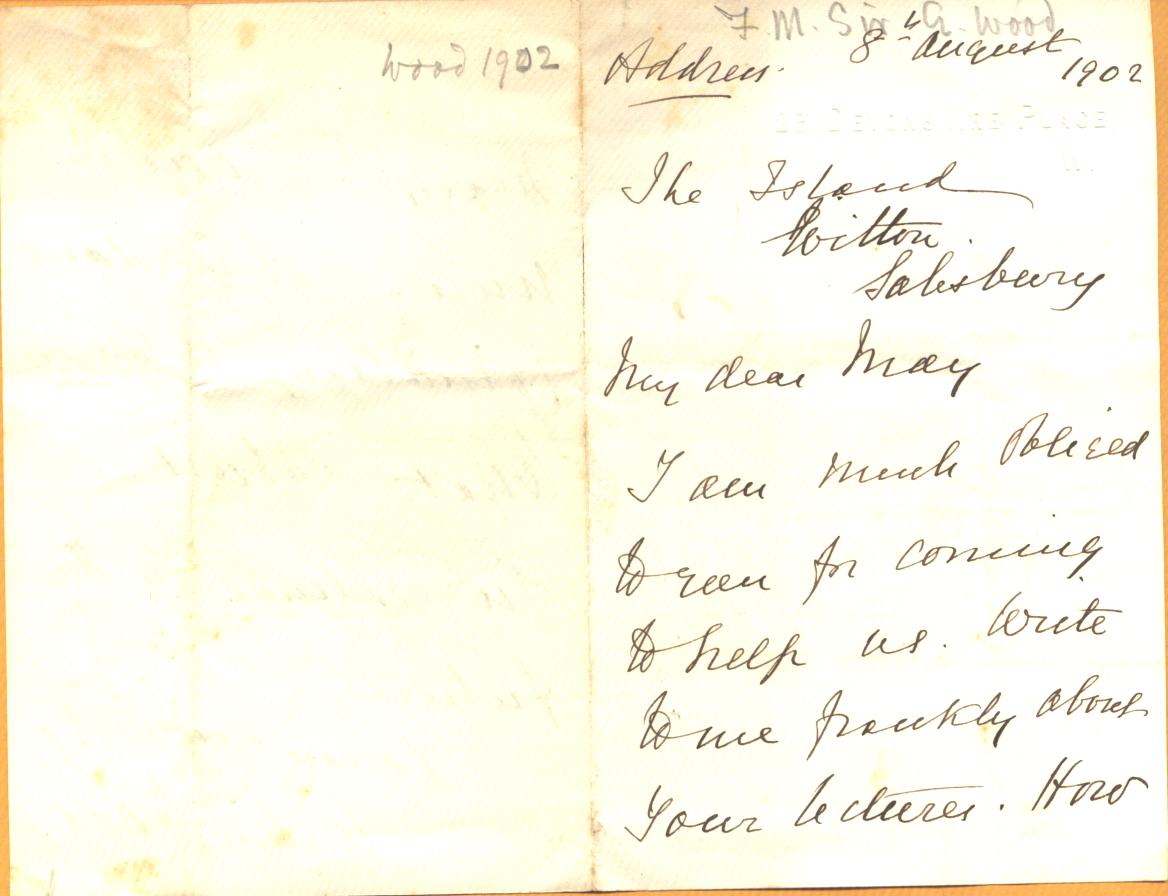 Wood 1902
F. M. Sir E. Wood
Address. 8th August
1902
DEVONSHIRE PLACE
W.
The Island
Wilton.
Salisbury
My dear May
I am much obliged
to you for coming
to help us. Write
to me frankly about
Your lectures. How